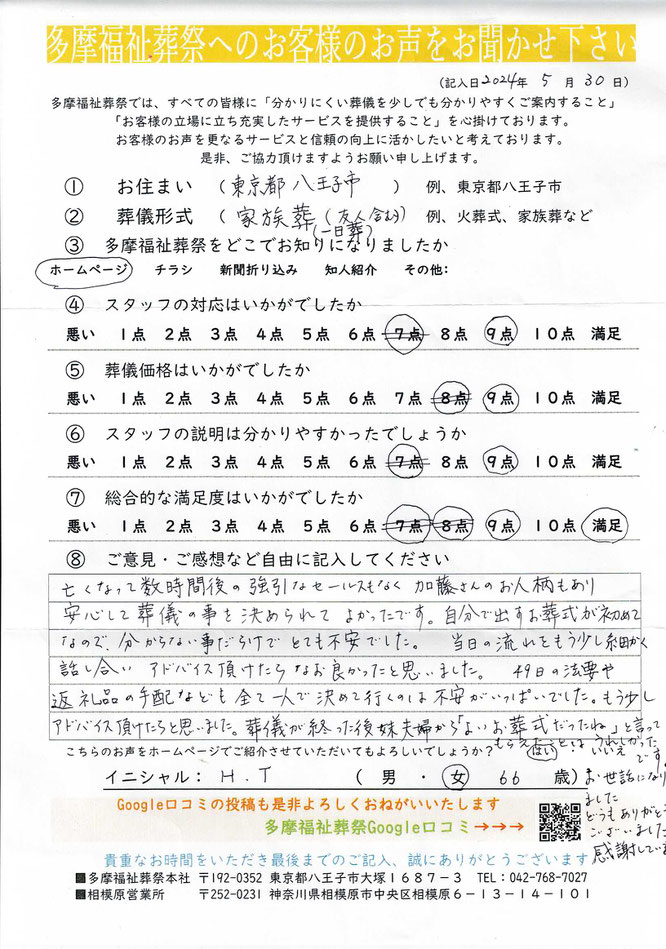 多摩福祉葬祭へのお客様のお声をお聞かせ下さい
（記入日2024年 5 月 30 日）
多摩福祉葬祭では、すべての皆様に「分かりにくい葬儀を少しでも分かりやすくご案内すること」
「お客様の立場に立ち充実したサービスを提供すること」を心掛けております。
お客様のお声を更なるサービスと信頼の向上に活かしたいと考えております。
是非、ご協力頂けますようお願い申し上げます。
① お住まい （東京都 八王子市 ） 例、東京都八王子市
② 葬儀形式 （家族葬（友人含む） 例、火葬式、家族葬など
（一日葬）
③ 多摩福祉葬祭をどこでお知りになりましたか
ホームページ チラシ 新聞折り込み 知人紹介 その他:
④ スタッフの対応はいかがでしたか
悪い 1点 2点 3点 4点 5点 6点 7点 8点 9点 10点 満足
⑤ 葬儀価格はいかがでしたか
悪い 1点 2点 3点 4点 5点 6点 7点 8点 9点 10点 満足
⑥ スタッフの説明は分かりやすかったでしょうか
悪い 1点 2点 3点 4点 5点 6点 7点 8点 9点 10点 満足
⑦ 総合的な満足度はいかがでしたか
悪い 1点 2点 3点 4点 5点 6点 7点 8点 9点 10点 満足
⑧ ご意見・ご感想など自由に記入してください
亡くなって数時間後の強引なセールスもなく 加藤さんのお人柄もあり
安心して葬儀の事を決められて よかったです。自分で出すお葬式が初めて
なので、分からない事だらけで とても不安でした。 当日の流れをもう少し細かく
話し合い アドバイス頂けたら なお良かったと思いました。 49日の法要や
返礼品の手配なども全て一人で決めて行くのは不安がいっぱいでした。もう少し
アドバイス頂けたらと思いました。葬儀が終った後妹夫婦から「よいお葬式だったね」と言って
もらえたことは うれしかった
です。
こちらのお声をホームページでご紹介させていただいてもよろしいでしょうか？ はい いいえ
イニシャル： H.T （ 男 ・ 女 66 歳）
お世話になり
ました
どうもありがとう
ございました
感謝してい
Google口コミの投稿も是非よろしくおねがいいたします
多摩福祉葬祭Google口コミ→→→
貴重なお時間をいただき最後までのご記入、誠にありがとうございます
■多摩福祉葬祭本社 〒192-0352 東京都八王子市大塚1687－3 TEL：042-768-7027
■相模原営業所 〒252-0231 神奈川県相模原市中央区相模原6－13－14－101